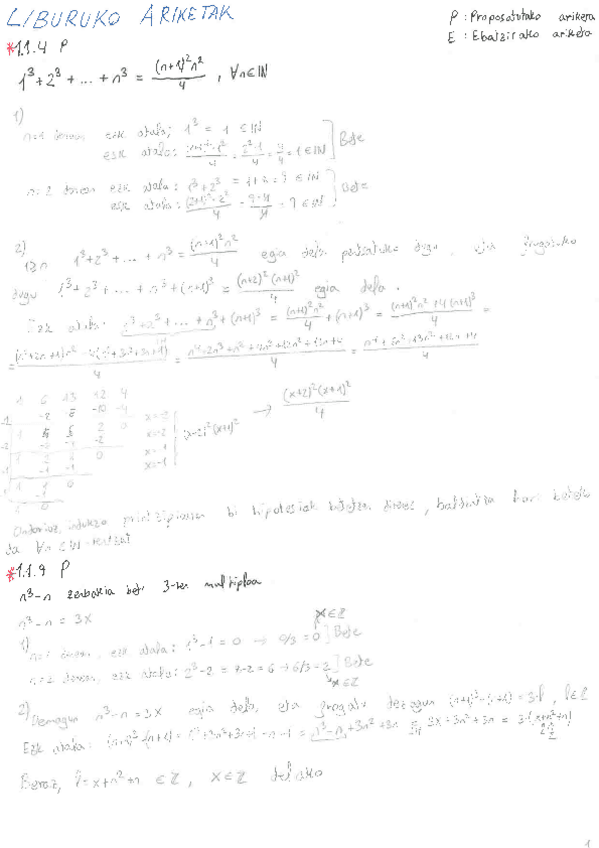 LIBURUKO ARIKETAK
P: Proposatutako ariketa
E: Ebatzirako ariketa
*1.1.4 P
1³+2³+...+n³ = (n+1)²n²/4 , ∀n∈ℕ
1)
n=1 denean ezk atala: 1³ = 1 ∈ ℕ
esk atala: (1+1)²·1²/4 = 2²·1/4 = 4/4 = 1 ∈ ℕ ] Bete
n=2 denean ezk atala: 1³+2³ = 1+8 = 9 ∈ ℕ
esk atala: (2+1)²·2²/4 = 9·4/4 = 9 ∈ ℕ ] Bete
2)
Izn 1³+2³+...+n³ = (n+1)²n²/4 egia dela pentsatuko dugu, eta frogatuko
dugu 1³+2³+...+n³+(n+1)³ = (n+2)²(n+1)²/4 egia dela.
Ezk atala: 1³+2³+...+n³+(n+1)³ = (n+1)²n²/4 + (n+1)³ = (n+1)²n²+4(n+1)³/4 =
= (n²+2n+1)n²+4(n³+3n²+3n+1)/4 = n⁴+2n³+n²+4n³+12n²+12n+4/4 = n⁴+6n³+13n²+12n+4/4
1 6 13 12 4
-2 -10 -4
x=-2
x=-2
x=-1
x=-1
(x+2)²(x+1)² → (x+2)²(x+1)²/4
Ondorioz, indukzio printzipioaren bi hipotesiak betetzen direnez, baldintza hori beteko
da ∀n∈ℕ-rentzat
*1.1.9 P
n³-n zenbakia beti 3-ren multiploa
n³-n = 3x x∈ℤ
1)
n=1 denean, ezk atala: 1³-1 = 0 → 0/3 = 0 ] Bete
n=2 denean, ezk atala: 2³-2 = 8-2 = 6 → 6/3 = 2 ] Bete
x∈ℤ
2) Demagun n³-n = 3x egia dela, eta frogatu dezagun (n+1)³-(n+1) = 3·l, l∈ℤ
Ezk atala: (n+1)³-(n+1) = n³+3n²+3n+1-n-1 = n³-n+3n²+3n = 3x+3n²+3n = 3·(x+n²+n)
Beraz, l = x+n²+n ∈ ℤ, x∈ℤ delako
1